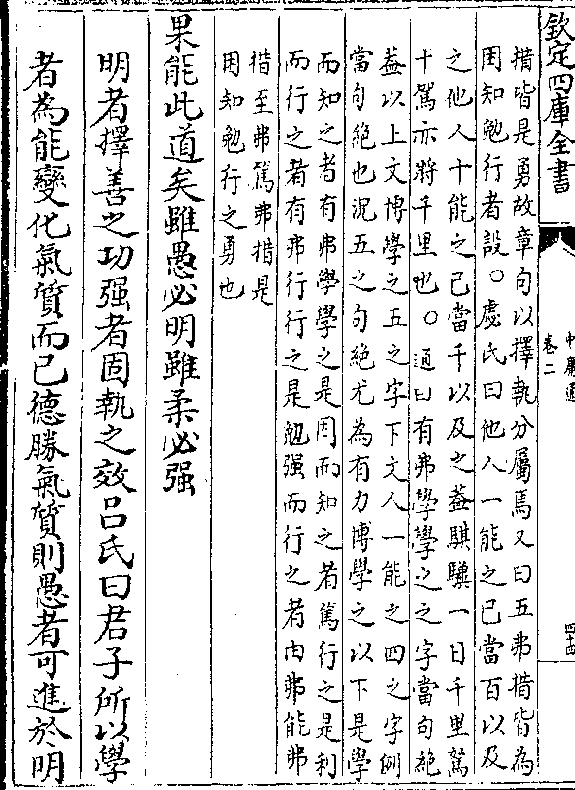 欽定四庫全書
中庸通
卷二
四十四
措皆是勇故章句以擇執分屬焉又曰五弗措皆為
困知勉行者設○處氏曰他人一能之已當百以及
之他人十能之己當千以及之葢騏驥一日千里駑
十駕亦將千里也○通曰有弗學學之之字當句絶
葢以上文博學之五之字下文人一能之四之字例
當句絶也況五之句絶尤為有力博學之以下是學
而知之者有弗學學之是困而知之者篤行之是利
而行之者有弗行行之是勉强而行之者由弗能弗
措至弗篤弗措是
困知勉行之勇也
果能此道矣雖愚必明雖柔必强
明者擇善之功强者固執之效呂氏曰君子所以學
者為能變化氣質而已德勝氣質則愚者可進於明